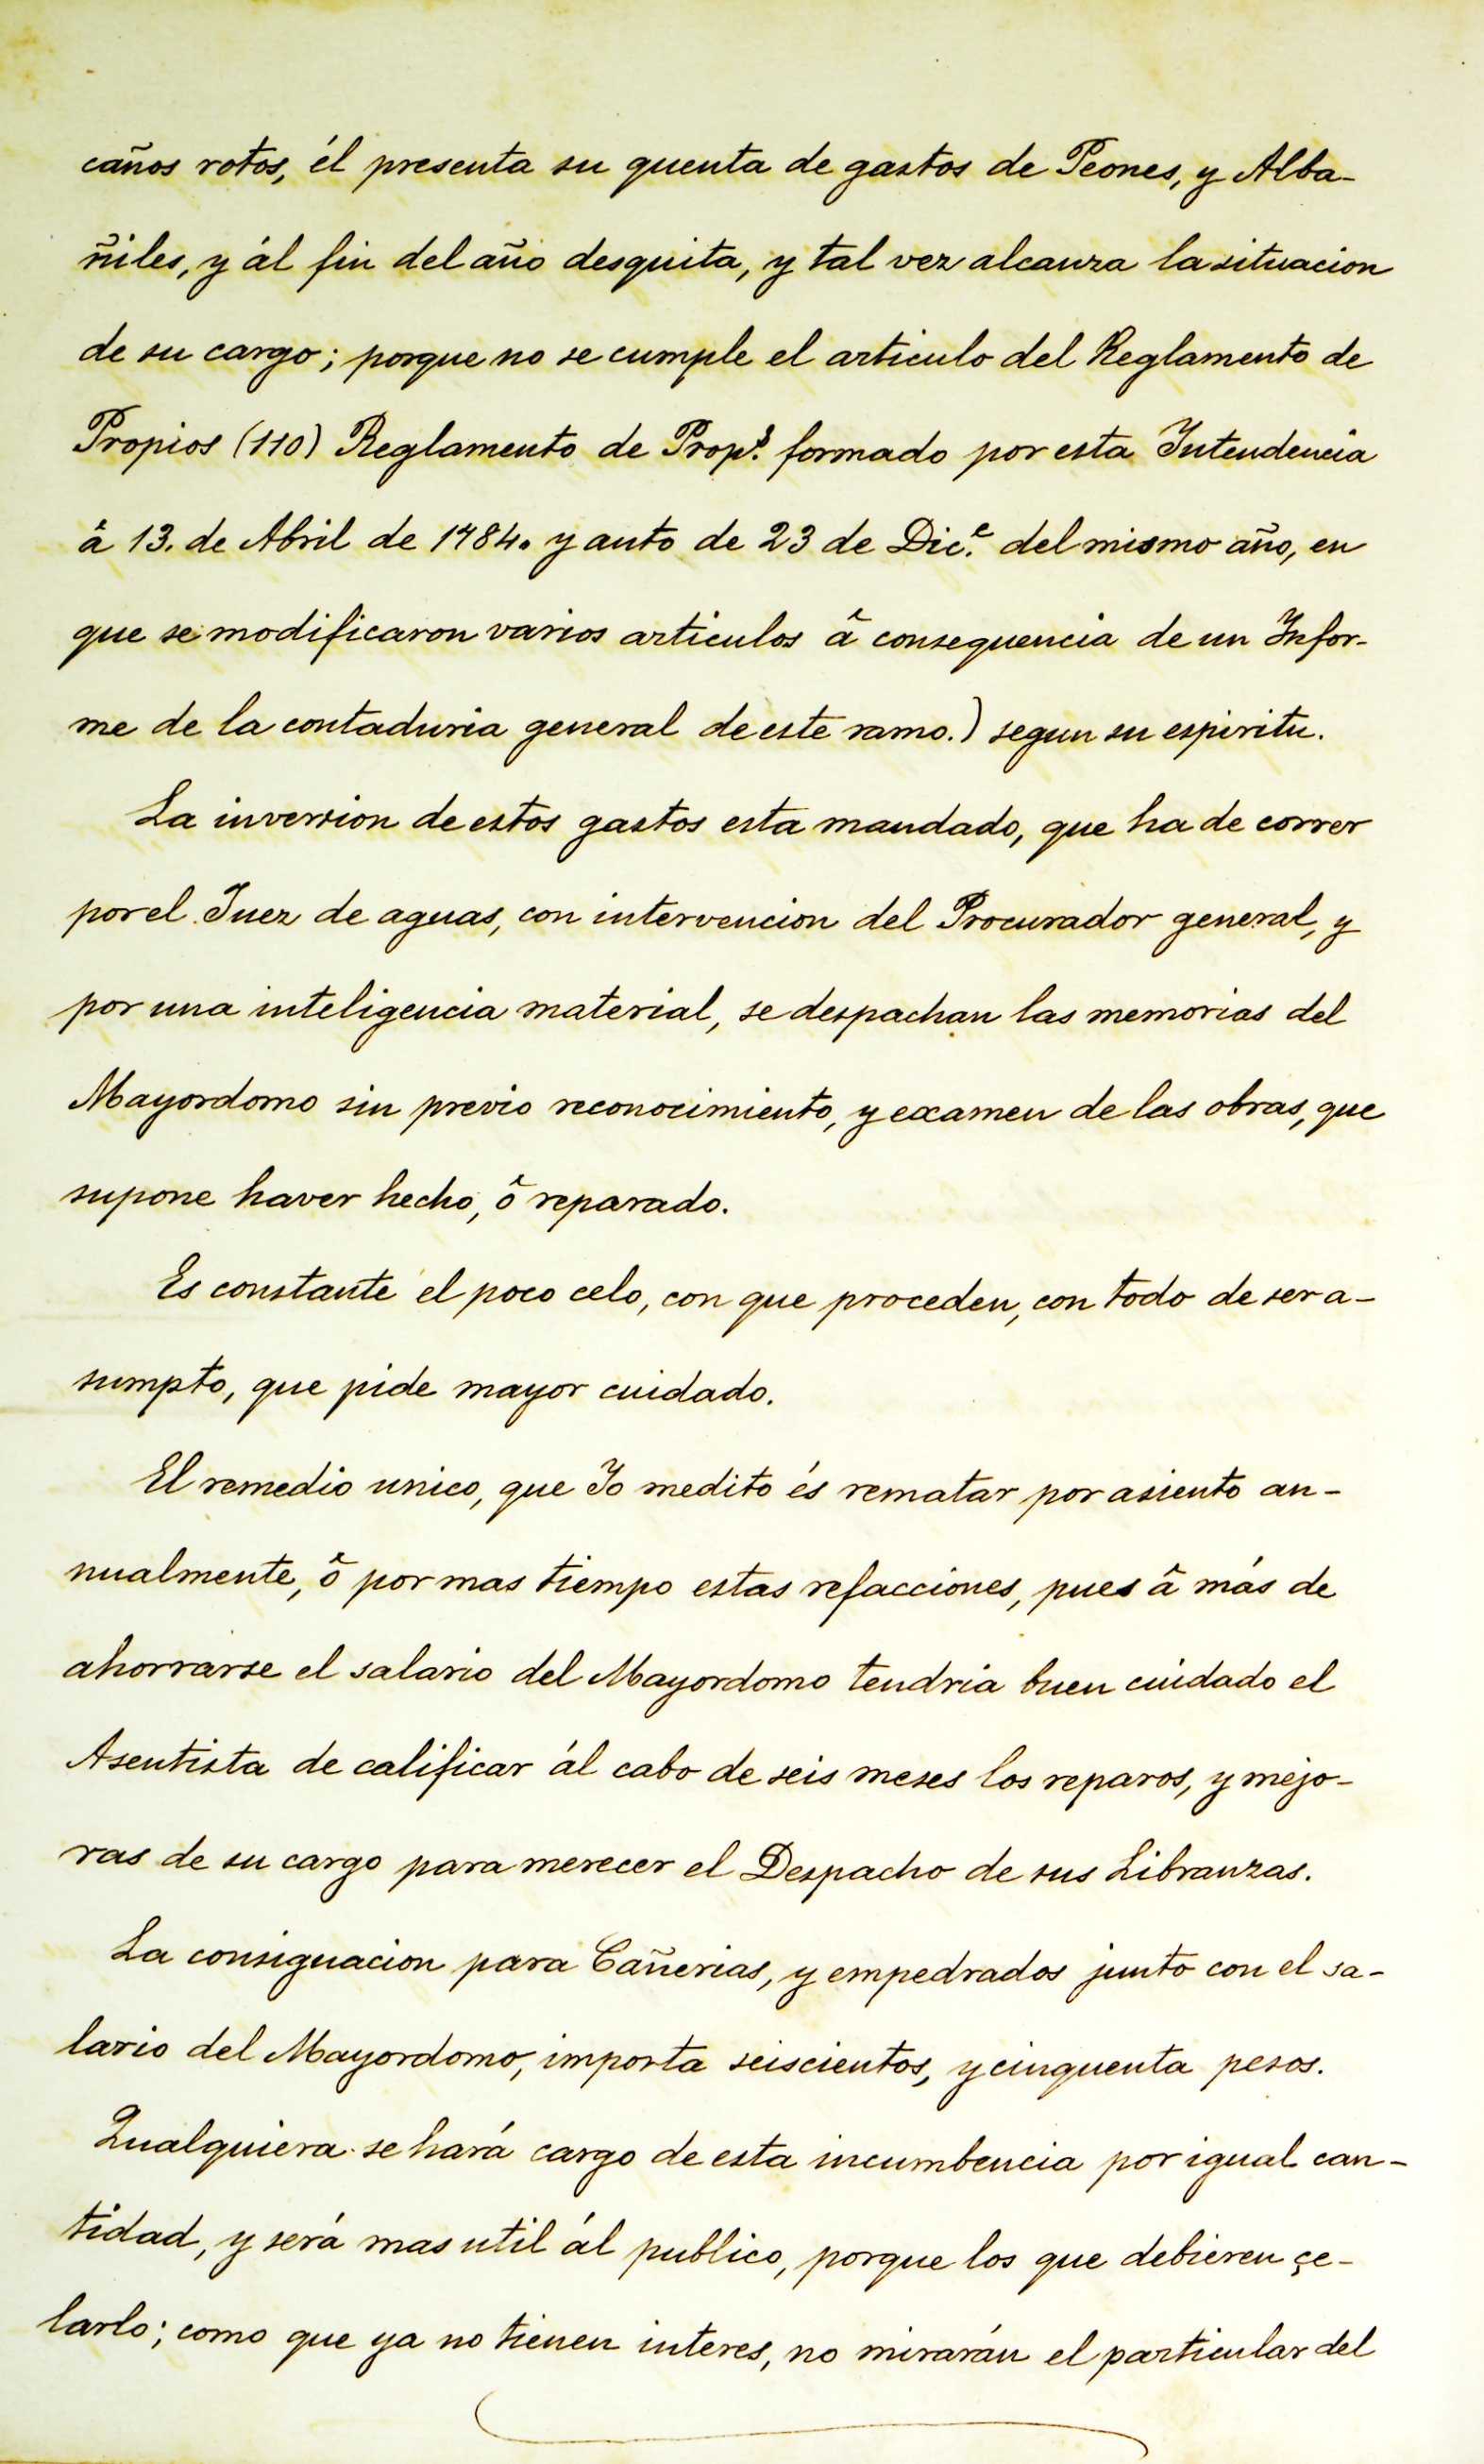 caños rotos, él presenta su quenta de gastos de Peones, y Alba-
ñiles, y ál fin del año desquita, y tal vez alcanza la situacion
de su cargo; porque no se cumple el articulo del Reglamento de
Propios (110) Reglamento de Prop.s formado por esta Intendencia
â 13. de Abril de 1784. y auto de 23 de Dic.e del mismo año, en
que se modificaron varios articulos â consequencia de un Infor-
me de la contaduria general de este ramo.) segun su espiritu.
La inversion de estos gastos esta mandado, que ha de correr
por el Juez de aguas, con intervencion del Procurador general, y
por una inteligencia material, se despachan las memorias del
Mayordomo sin previo reconocimiento, y examen de las obras, que
supone haver hecho, ô reparado.
Es constante el poco celo, con que proceden, con todo de ser a-
sumpto, que pide mayor cuidado.
El remedio unico, que Yo medito és rematar por asiento an-
nualmente, ô por mas tiempo estas refacciones, pues â más de
ahorrarse el salario del Mayordomo tendria buen cuidado el
Asentista de calificar ál cabo de seis meses los reparos, y mejo-
ras de su cargo para merecer el Despacho de sus Libranzas.
La consignacion para Cañerias, y empedrados junto con el sa-
lario del Mayordomo, importa seiscientos, y cinquenta pesos.
Qualquiera se hará cargo de esta incumbencia por igual can-
tidad, y será mas util ál publico, porque los que debieren çe-
larlo; como que ya no tienen interes, no mirarán el particular del